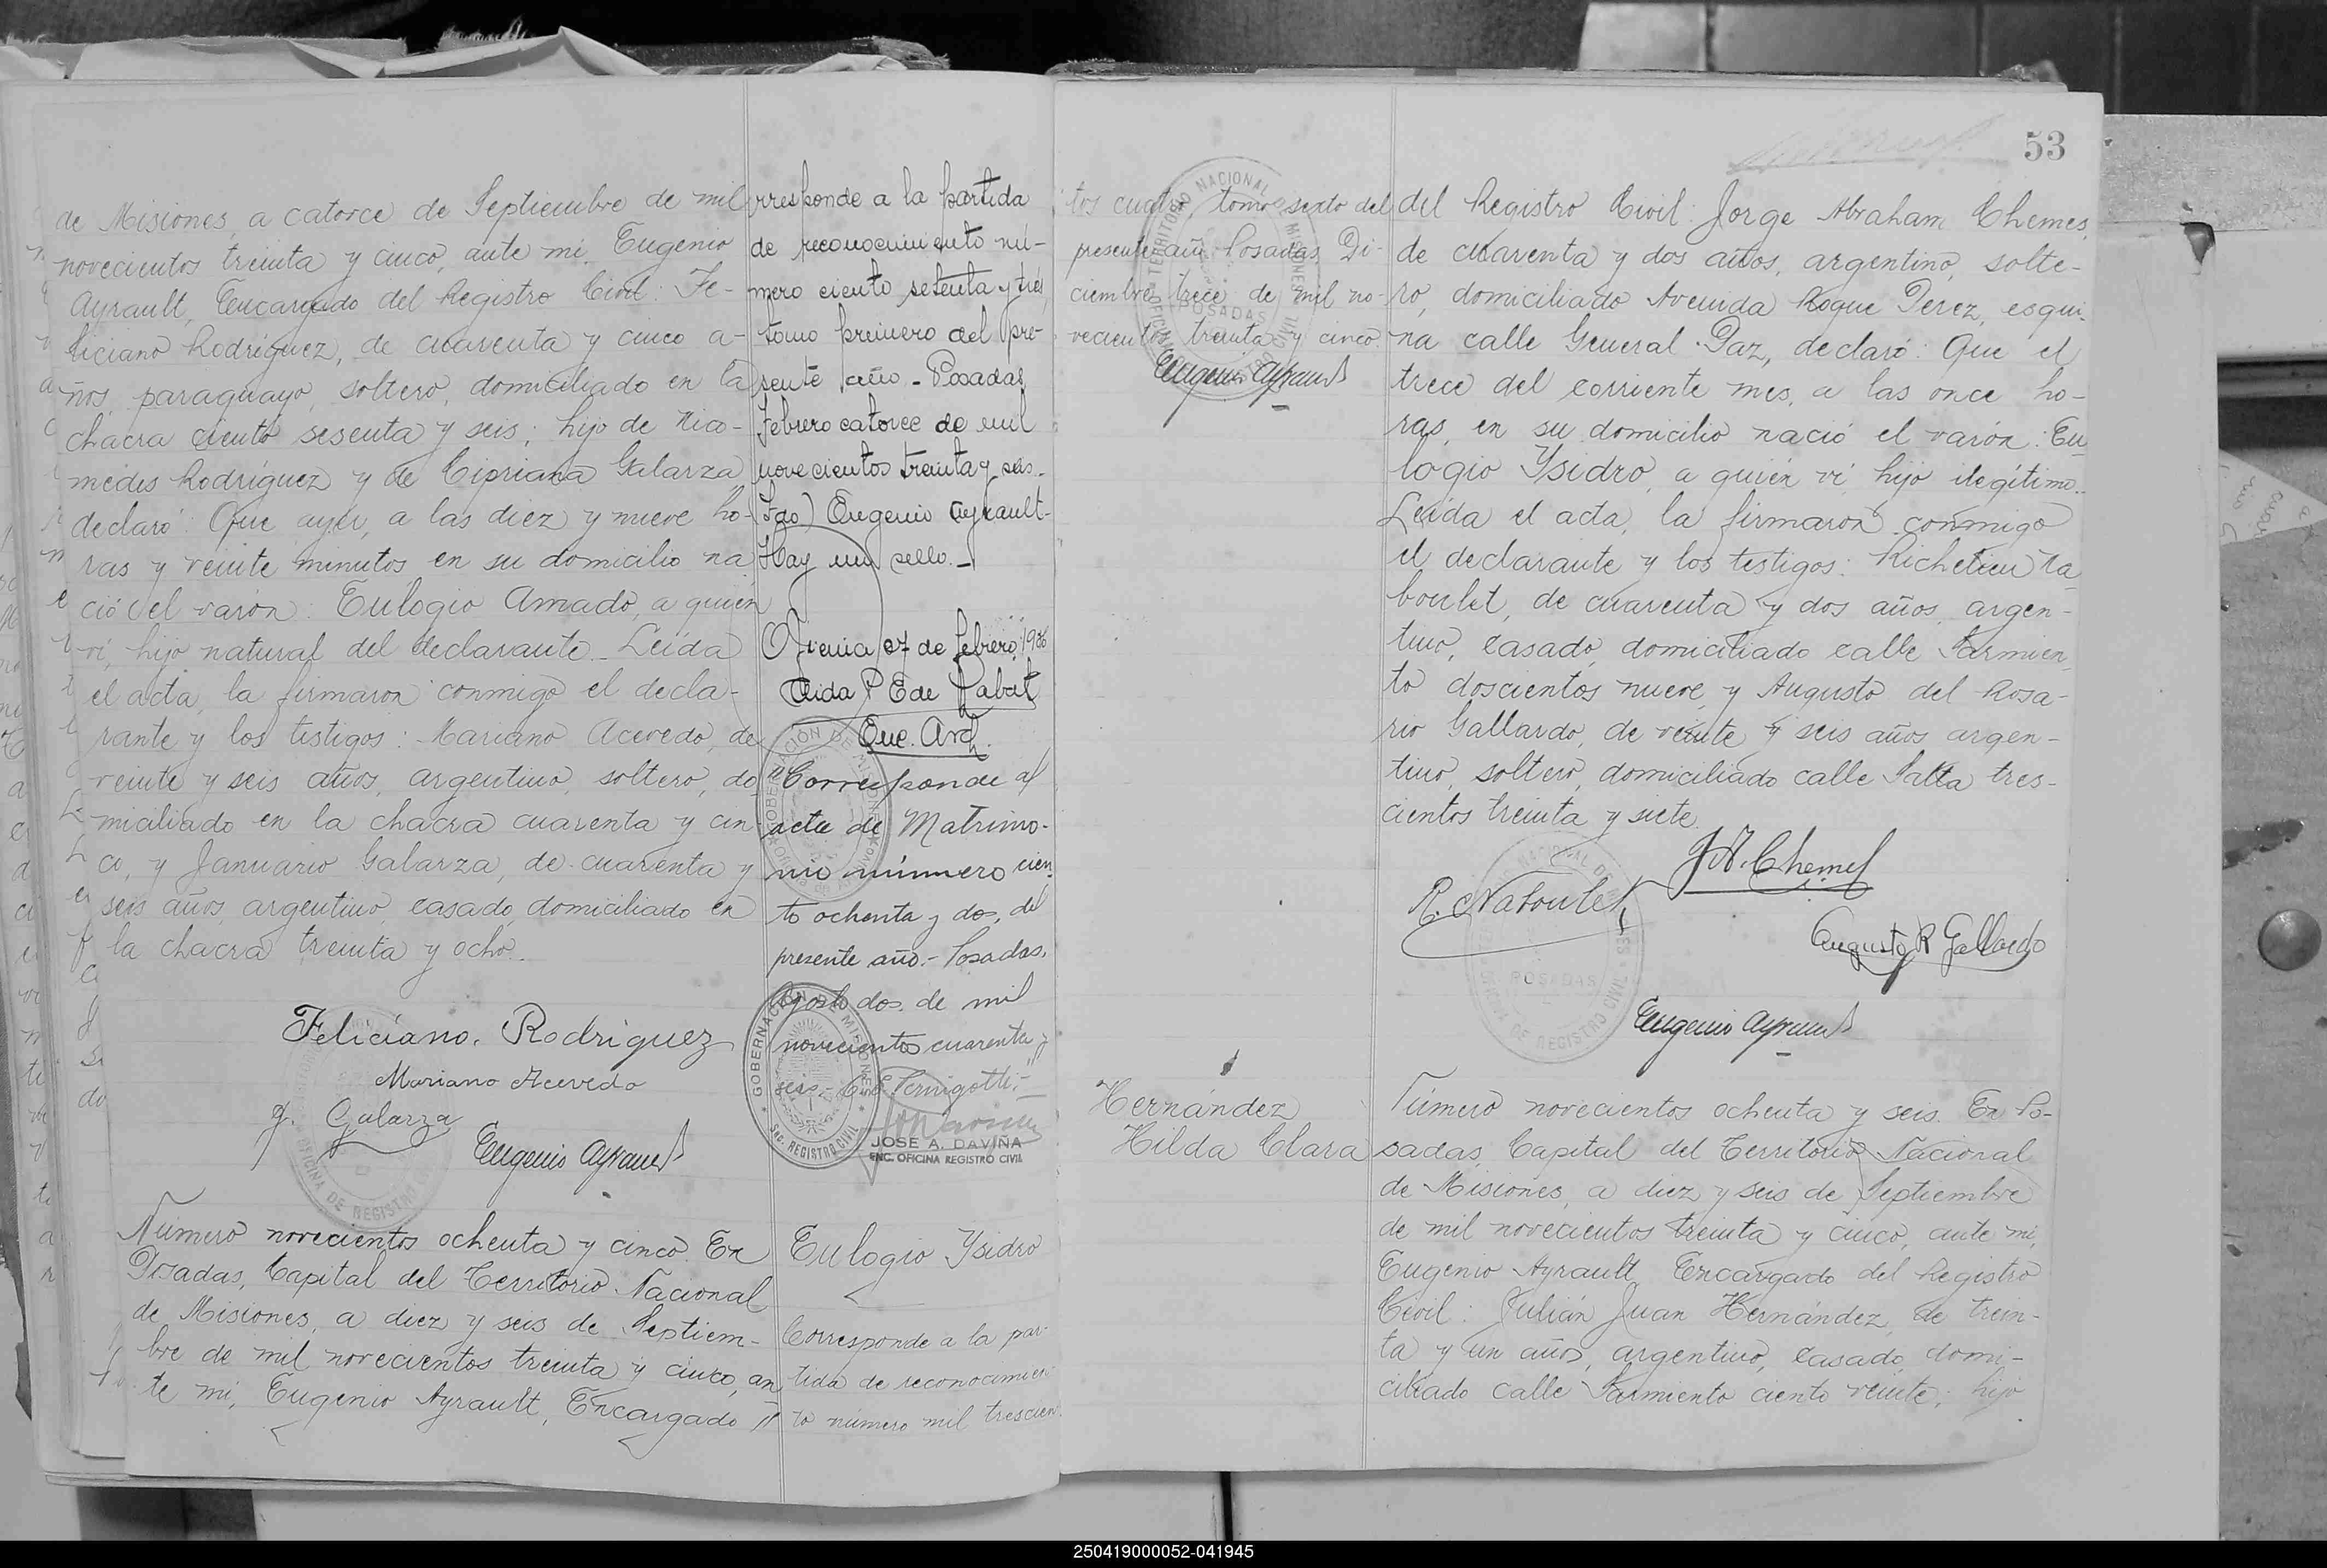 de Misiones, a catorce de Septiembre de mil
novecientos treinta y cinco, ante mi, Eugenio
Ayrault, Encargado del Registro Civil: Fe-
liciano Rodríguez, de cuarenta y cinco a-
ños, paraguayo, soltero, domiciliado en la
chacra ciento sesenta y seis; hijo de Nico-
medes Rodríguez y de Cipriana Galarza
declaró: Que ayer, a las diez y nueve ho-
ras y veinte minutos en su domicilio na
ció el varón: Eulogio Amado, a quien
vi, hijo natural del declarante. Leída
el acta, la firmaron conmigo el decla-
rante y los testigos: Mariano Acevedo, de
veinte y seis años, argentino, soltero, do
miciliado en la chacra cuarenta y cin-
co, y Januario Galarza, de cuarenta y
seis años, argentino, casado, domiciliado en
la chacra treinta y ocho.
Feliciano. Rodríguez
Mariano Acevedo
J. Galarza
Eugenio Ayrault
Número novecientos ochenta y cinco. En
Posadas, Capital del Territorio Nacional
de Misiones, a diez y seis de Septiem-
bre de mil novecientos treinta y cinco, an
te mi, Eugenio Ayrault, Encargado //
rresponde a la partida
de reconocimiento nú-
mero ciento setenta y tres
tomo primero del pre-
sente año - Posadas
Febrero catorce de mil
novecientos treinta y seis.-
Fdo) Eugenio Ayrault-
Hay un sello.-
27 de febrero 1936
Aida P E de Labat
Enc. Arch.
Corresponde al
acta de Matrimo-
nio número cien
to ochenta y dos, del
presente año.- Posadas,
Agosto dos de mil
novecientos cuarenta y
seis.-
GOBERNACIÓN DE MISIONES
Sec. REGISTRO CIVIL
JOSE A. DAVIÑA
ENC. OFICINA REGISTRO CIVIL
Eulogio Ysidro
Corresponde a la par-
tida de reconocimien
to número mil trescien
53
tos cuatro, tomo sexto del
presente año Posadas, Di-
ciembre trece de mil no-
vecientos treinta y cinco.
Eugenio Ayrault
TERRITORIO NACIONAL MISIONES
POSADAS
OFICINA REGISTRO CIVIL
del Registro Civil: Jorge Abraham Chemes,
de cuarenta y dos años, argentino, solte-
ro, domiciliado Avenida Roque Perez, esqui-
na calle General Paz, declaró: Que el
trece del corriente mes, a las once ho-
ras, en su domicilio nació el varón: Eu
logio Ysidro, a quién vi, hijo ilegítimo.
Leída el acta, la firmaron conmigo
el declarante y los testigos: Richelieu Na
boulet, de cuarenta y dos años, argen-
tino, casado, domiciliado calle Sarmien
to doscientos nueve, y Augusto del Rosa-
rio Gallardo, de veinte y seis años argen-
tino, soltero, domiciliado calle Salta tres-
cientos treinta y siete.
J. A. Chemes
R. Naboulet
Augusto R Gallardo
POSADAS
DE REGISTRO CIVIL
Eugenio Ayrault
Hernández
Hilda Clara
Número novecientos ochenta y seis. En Po-
sadas, Capital del Territorio Nacional
de Misiones, a diez y seis de Septiembre
de mil novecientos treinta y cinco, ante mi,
Eugenio Ayrault, Encargado del Registro
Civil: Julián Juan Hernández, de trein-
ta y un años, argentino, casado, domi-
ciliado calle Sarmiento ciento veinte; hijo
250419000052-041945